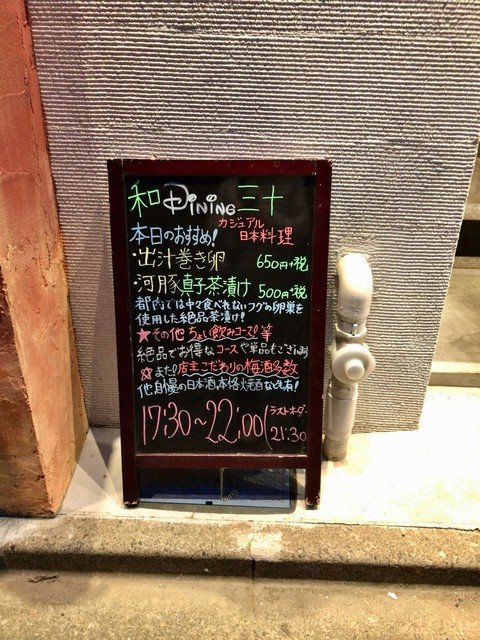 和 DINING 三十
カジュアル
日本料理
本日のおすすめ!
・出汁巻き卵 650円+税
・河豚真子茶漬け 500円+税
都内では中々食べれないフグの卵巣を
使用した絶品茶漬け!
★その他 ちょい飲みコース 等
絶品でお得なコースや単品もござい〼
☆また!店主こだわりの梅酒多数
他自慢の日本酒本格焼酎なども有!
17:30〜22:00(ラストオーダー
21:30